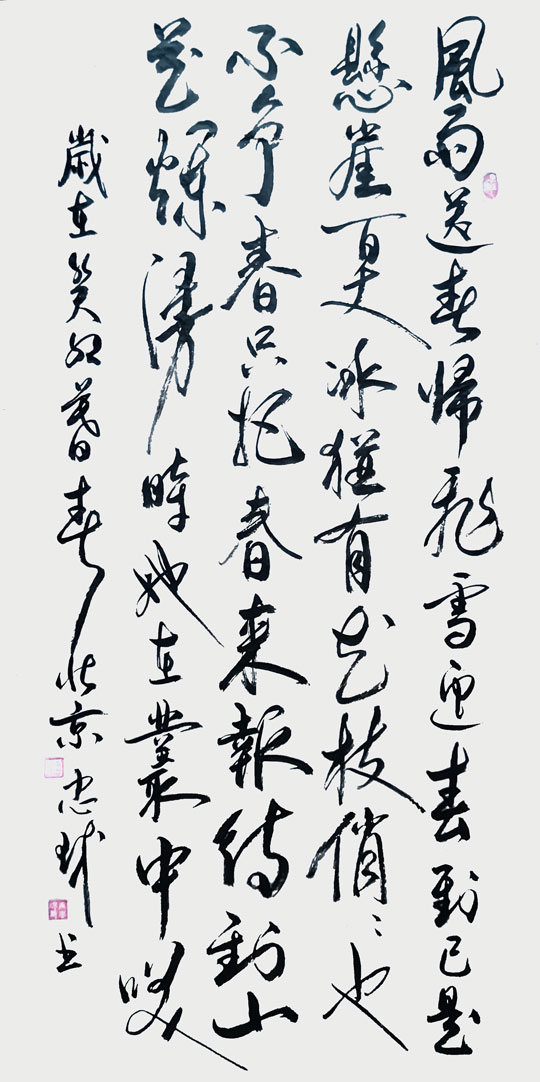 風雨送春歸飛雪迎春到已是
懸崖百丈冰猶有花枝俏〻也
不争春只把春来報待到山
花爛漫時她在叢中咲
歲在癸卯暮春北京忠球书